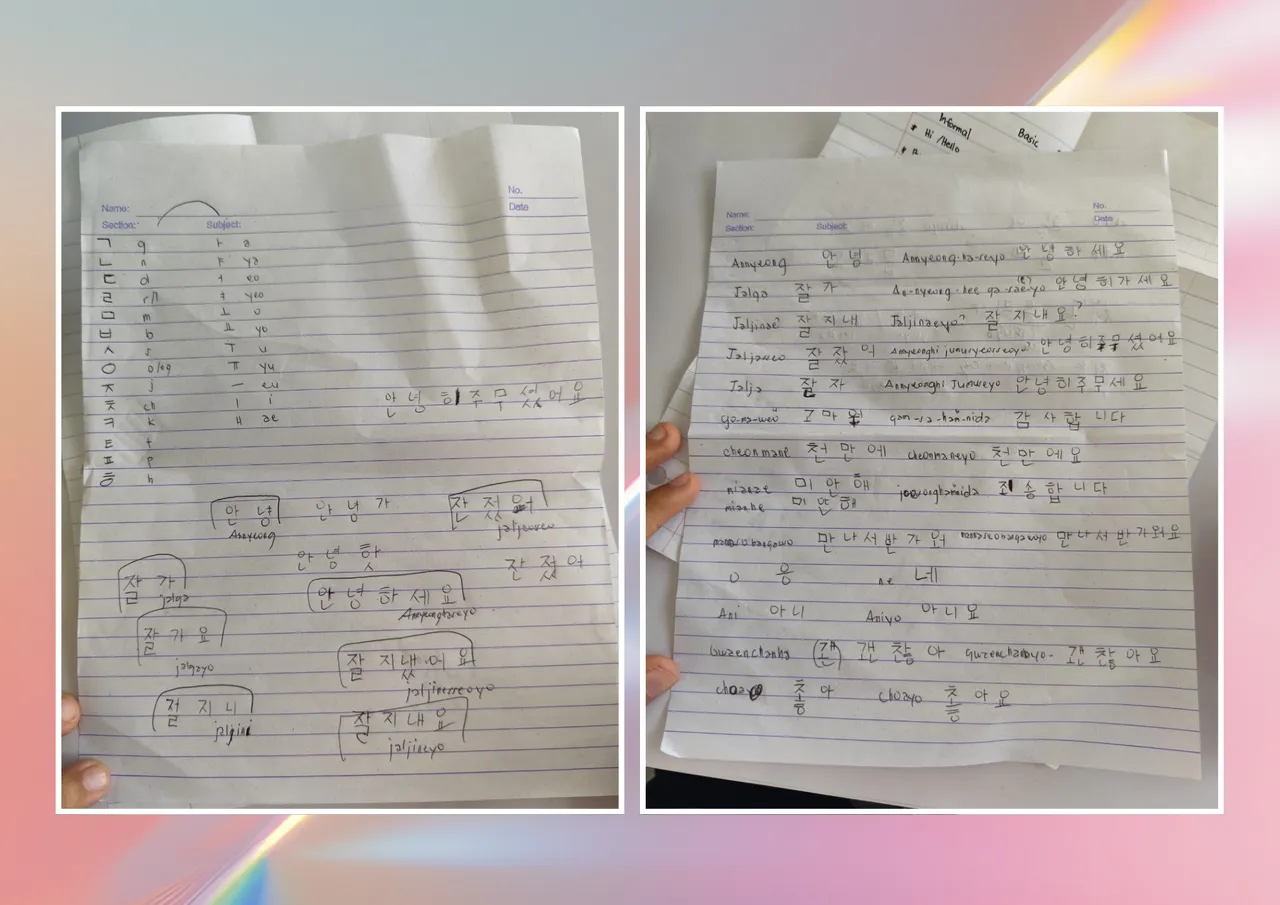 No.
Name:
Date
Section: Subject:
ㄱ g ㅏ a
ㄴ n ㅑ ya
ㄷ d ㅓ eo
ㄹ r/l ㅕ yeo
ㅁ m ㅗ o
ㅂ b ㅛ yo
ㅅ s ㅜ u
ㅇ o/ng ㅠ yu
ㅈ j ㅡ eu
ㅊ ch ㅣ i 안녕히주무셨어요
ㅋ k ㅐ ae
ㅌ t
ㅍ p
ㅎ h
안녕 안녕가
Annyeong jaljeoseo
안녕핫 잔젔어
잘가 안녕하세요
jalga Annyeonghaseyo
잘가요
jalgayo 잘지냈어요
jaljinesseoyo
절지니 잘지내요
jaljini jaljineyo
Informal Basic
* Hi /Hello
No.
Name:
Date
Section: Subject:
Annyeong 안녕 Annyeong-ha-seyo 안녕하세요
Jalga 잘가 An-nyeong-hee ga-sae-yo (e) 안녕히가세요
Jaljinae? 잘지내 Jaljinaeyo? 잘지내요?
Jaljasseo 잘잤어 Annyeonghi jumusyeosseoyo? 안녕히주무셨어요
Jalja 잘자 Annyeonghi Jumuseyo 안녕히주무세요
go-ma-weo 고마워 gam-sa-ham-nida 감사합니다
cheonmane 천만에 cheonmaneyo 천만에요
mianae 미안해 죄송합니다
mianhe 미안해
만나서반가워 만나서반가워요
응 ne 네
Ani 아니 Aniyo 아니요
Gwaenchanha (괜) 괜찮아 gwaenchanayo- 괜찮아요
choa 좋아 Choayo 좋아요